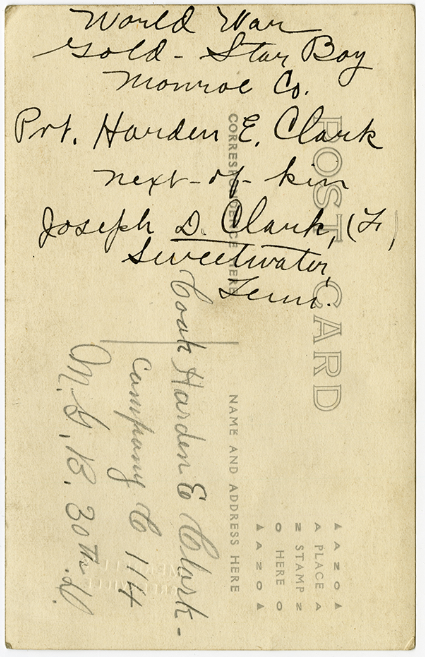 World War
Gold - Star Boy
Monroe Co.
Pvt. Harden E. Clark
next-of-kin
Joseph D. Clark, (F,
Sweetwater,
Tenn.
Cook Harden E Clark -
Company C 114
M.G.B. 30th D.
POST CARD
CORRESPONDENCE HERE
NAME AND ADDRESS HERE
AZO
PLACE
STAMP
HERE
AZO